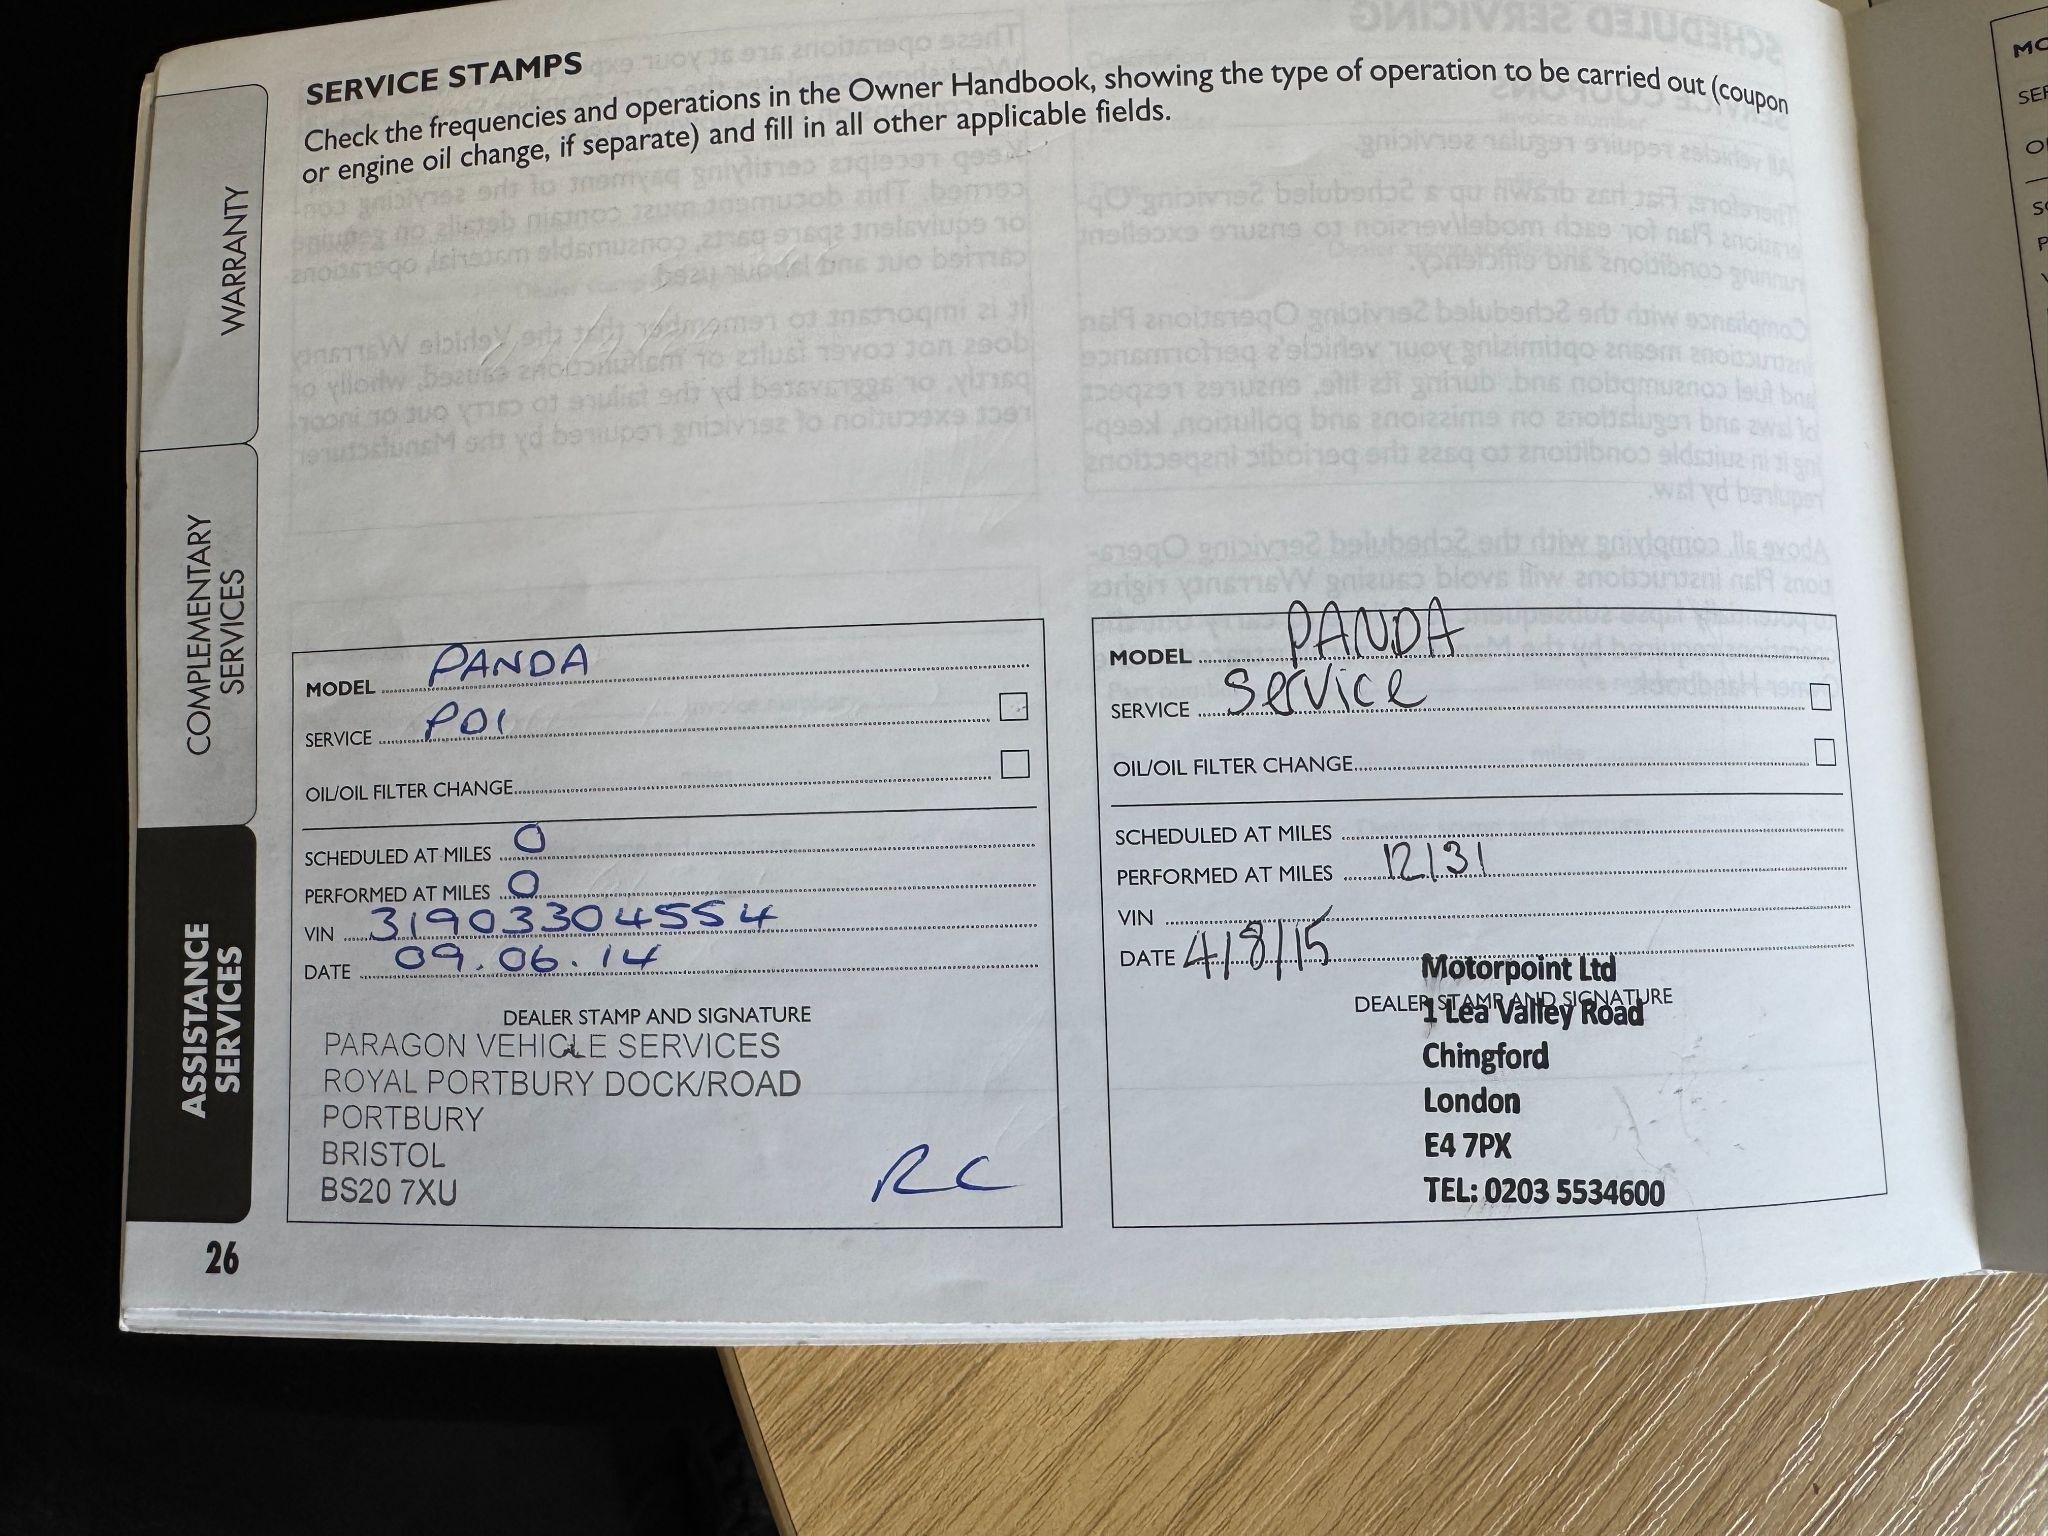 SERVICE STAMPS
Check the frequencies and operations in the Owner Handbook, showing the type of operation to be carried out (coupon
or engine oil change, if separate) and fill in all other applicable fields.
WARRANTY
COMPLEMENTARY
SERVICES
ASSISTANCE
SERVICES
MODEL PANDA
SERVICE PDI
OIL/OIL FILTER CHANGE
SCHEDULED AT MILES 0
PERFORMED AT MILES 0
VIN 31903304554
DATE 09.06.14
DEALER STAMP AND SIGNATURE
PARAGON VEHICLE SERVICES
ROYAL PORTBURY DOCK/ROAD
PORTBURY
BRISTOL
BS20 7XU
RC
MODEL PANDA
SERVICE Service
OIL/OIL FILTER CHANGE
SCHEDULED AT MILES
PERFORMED AT MILES 12131
VIN
DATE 4/8/15
DEALER STAMP AND SIGNATURE
Motorpoint Ltd
1 Lea Valley Road
Chingford
London
E4 7PX
TEL: 0203 5534600
26